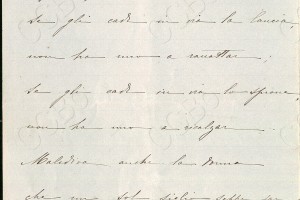 Se gli cade in via la lancia,
non ha uno a raccattar;
Se gli cade in via lo sprone,
non ha uno a rialzar.
Maledica anche la donna
che un sol figlio seppe